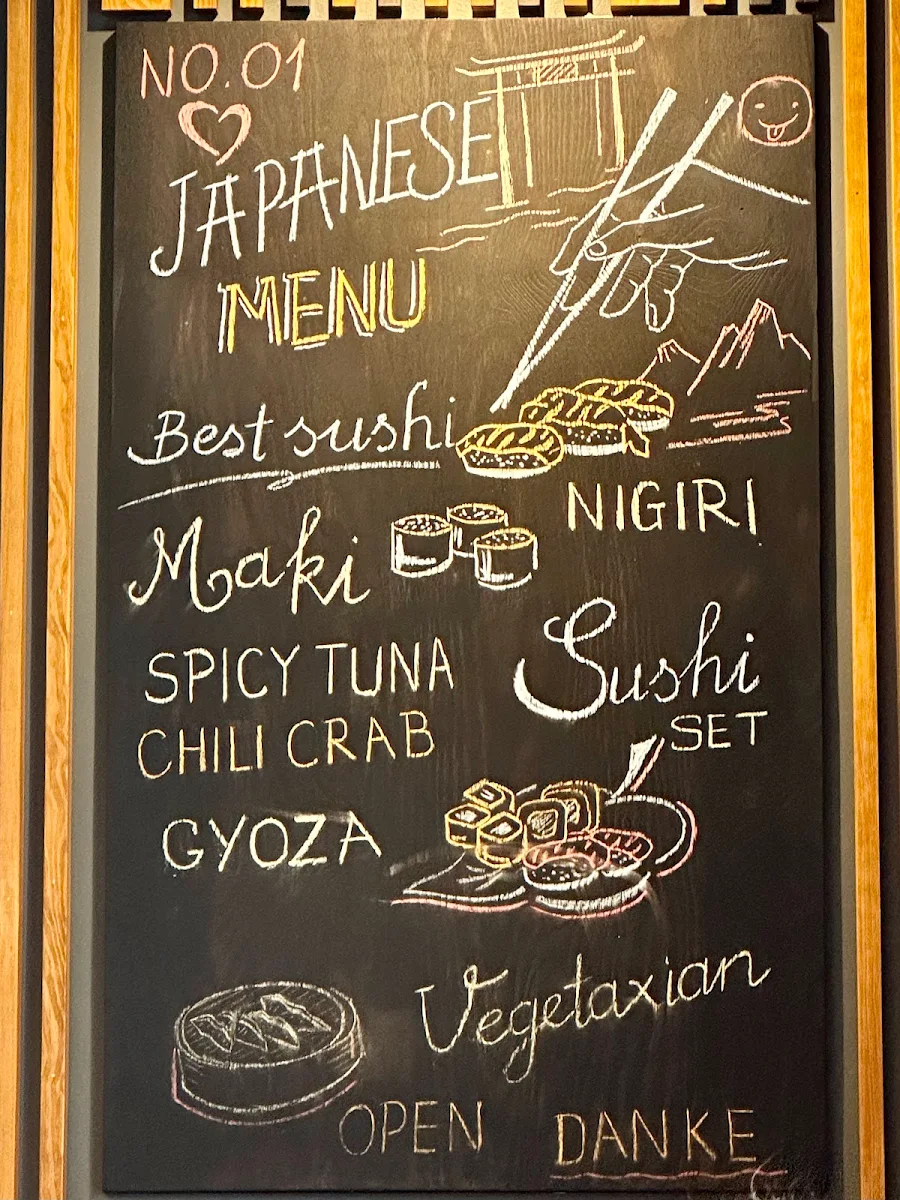 NO.01
JAPANESE
MENU
Best sushi
NIGIRI
Maki
SPICY TUNA
CHILI CRAB
Sushi
SET
GYOZA
Vegetaxian
OPEN DANKE